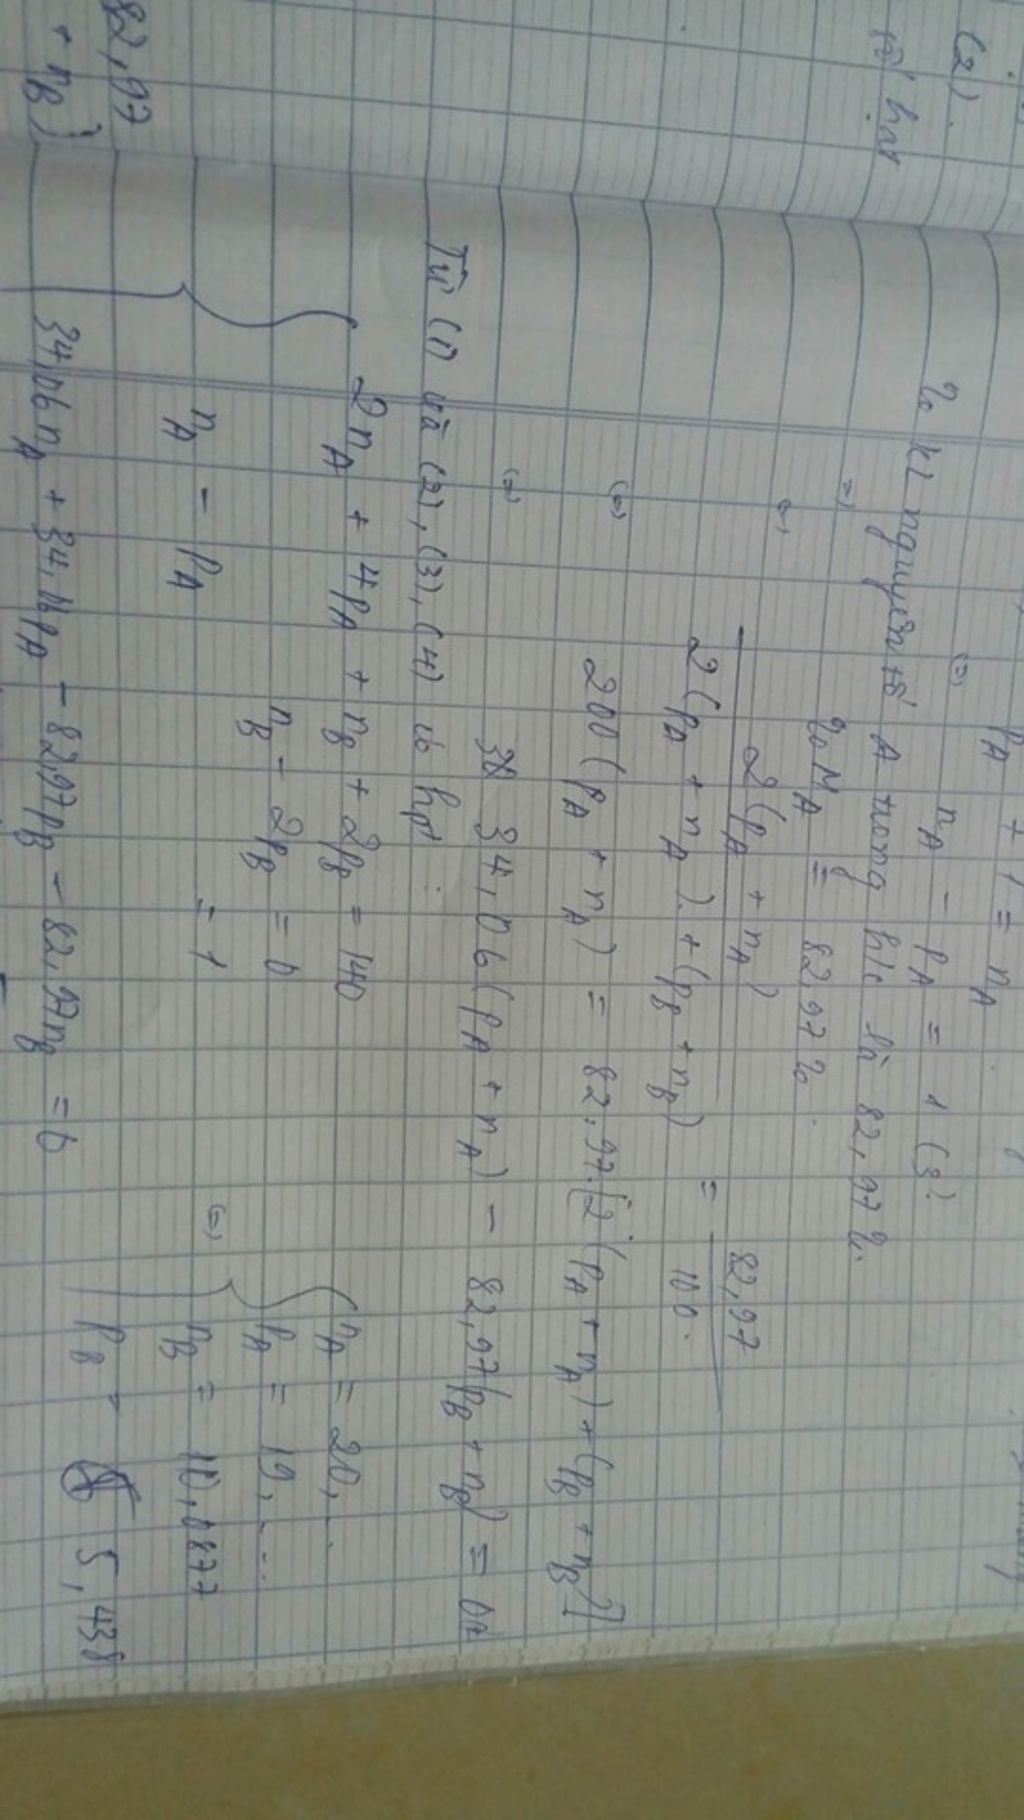 (2).
số hạt
82,97
+ nB)
PA + 1 = nA
(=) nA - PA = 1 (3)
% KL nguyên tố A trong h/c là 82,97%
=) %MA = 82,97%.
2(PA + nA) / 2(PA + nA) + (PB + nB) = 82,97 / 100.
(=) 200(PA + nA) = 82,97.[2(PA + nA) + (PB + nB)]
(=) 34,06(PA + nA) - 82,97(PB + nB) = 0
Từ (1) và (2), (3), (4) có hpt:
2nA + 4PA + nB + 2PB = 140
nB - 2PB = 0
nA - PA = 1
34,06nA + 34,06PA - 82,97PB - 82,97nB = 0
(=) nA = 20,...
PA = 19,...
nB = 10,877
PB = 5,438